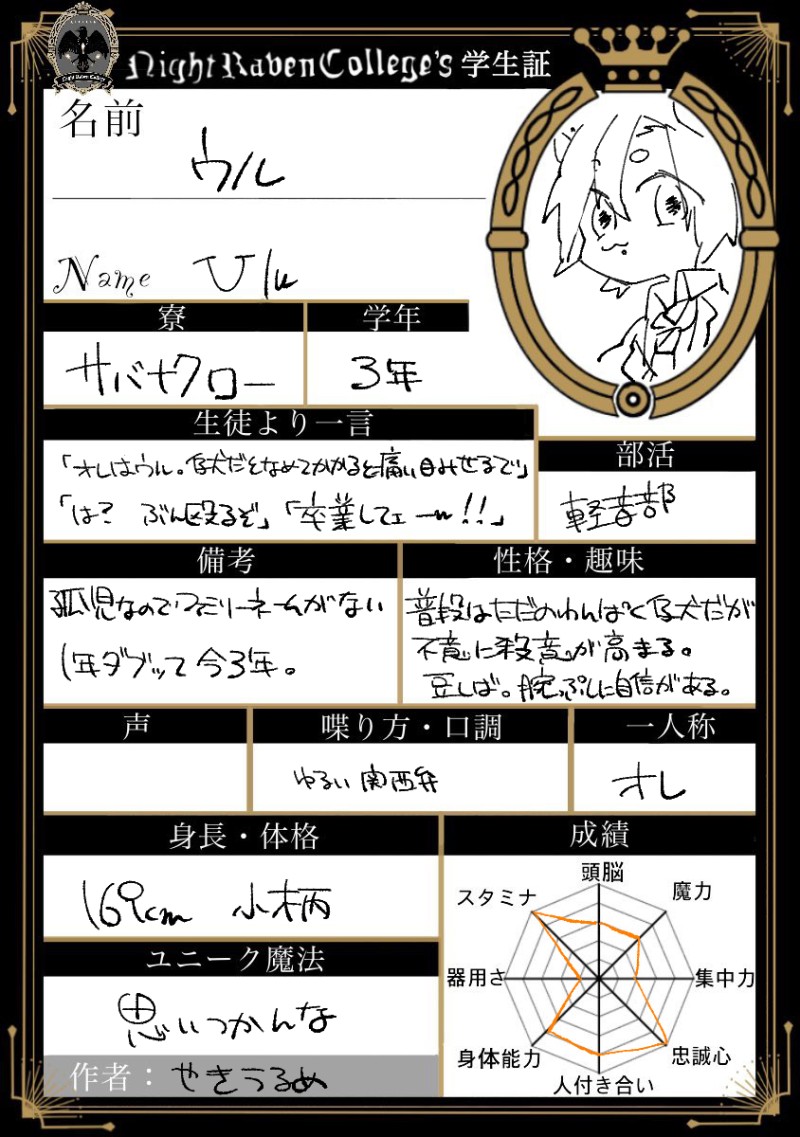 Night Raven College's 学生証
Night Raven College
名前
ウル
Name Ulu
寮
学年
サバナクロー
3年
生徒より一言
「オレはウル。仔犬だとなめてかかると痛い目みせるで」
「は? ぶん殴るぞ」「卒業してェーー!!」
部活
軽音部
備考
孤児なのでファミリーネームがない
1年ダブって今3年。
性格・趣味
普段はただのわんぱく仔犬だが
不意に殺意が高まる。
豆しば。腕っぷしに自信がある。
声
喋り方・口調
ゆるい関西弁
一人称
オレ
身長・体格
169cm 小柄
ユニーク魔法
思いつかんな
作者：やきうるめ
成績
頭脳
魔力
集中力
忠誠心
人付き合い
身体能力
器用さ
スタミナ